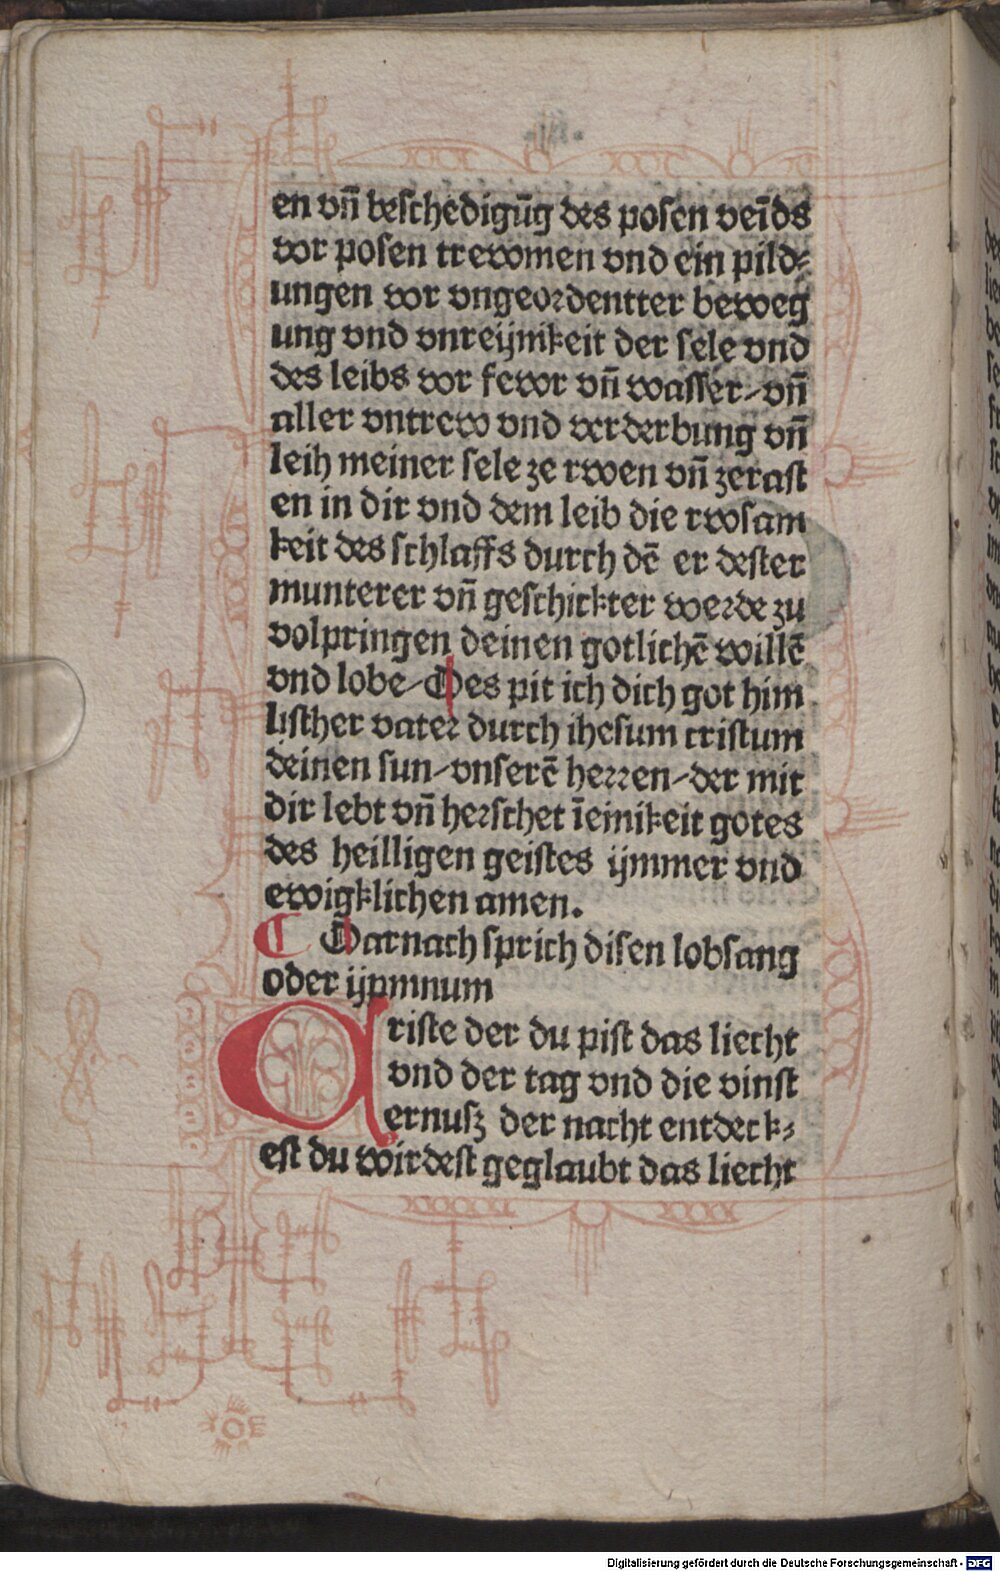 en vn̄ beschedigūg des posen veīds
vor posen trewomen vnd ein pild⸗
ungen vor vngeordentter beweg
ung vnd vnreijnikeit der sele vnd
des leibs vor fewr vn̄ wasser/vn̄
aller vntrew vnd verderbung vn̄
leih meiner sele ze rwen vn̄ zerast
en in dir vnd dem leib die rwsam
keit des schlaffs durch dē er dester
munterer vn̄ geschickter werde zu
volpringen deinen gotlichē willē
vnd lobe/Des pit ich dich got him
listher vater durch ihesum cristum
deinen sun/vnserē herren/der mit
dir lebt vn̄ herschet ī einikeit gotes
des heilligen geistes ijmmer vnd
ewigklichen amen.
Darnach sprich disen lobsang
oder ijpmnum
Criste der du pist das liecht
vnd der tag vnd die vinst
ernusz der nacht entdeck⸗
est du wirdest geglaubt das liecht
Digitalisierung gefördert durch die Deutsche Forschungsgemeinschaft - DFG